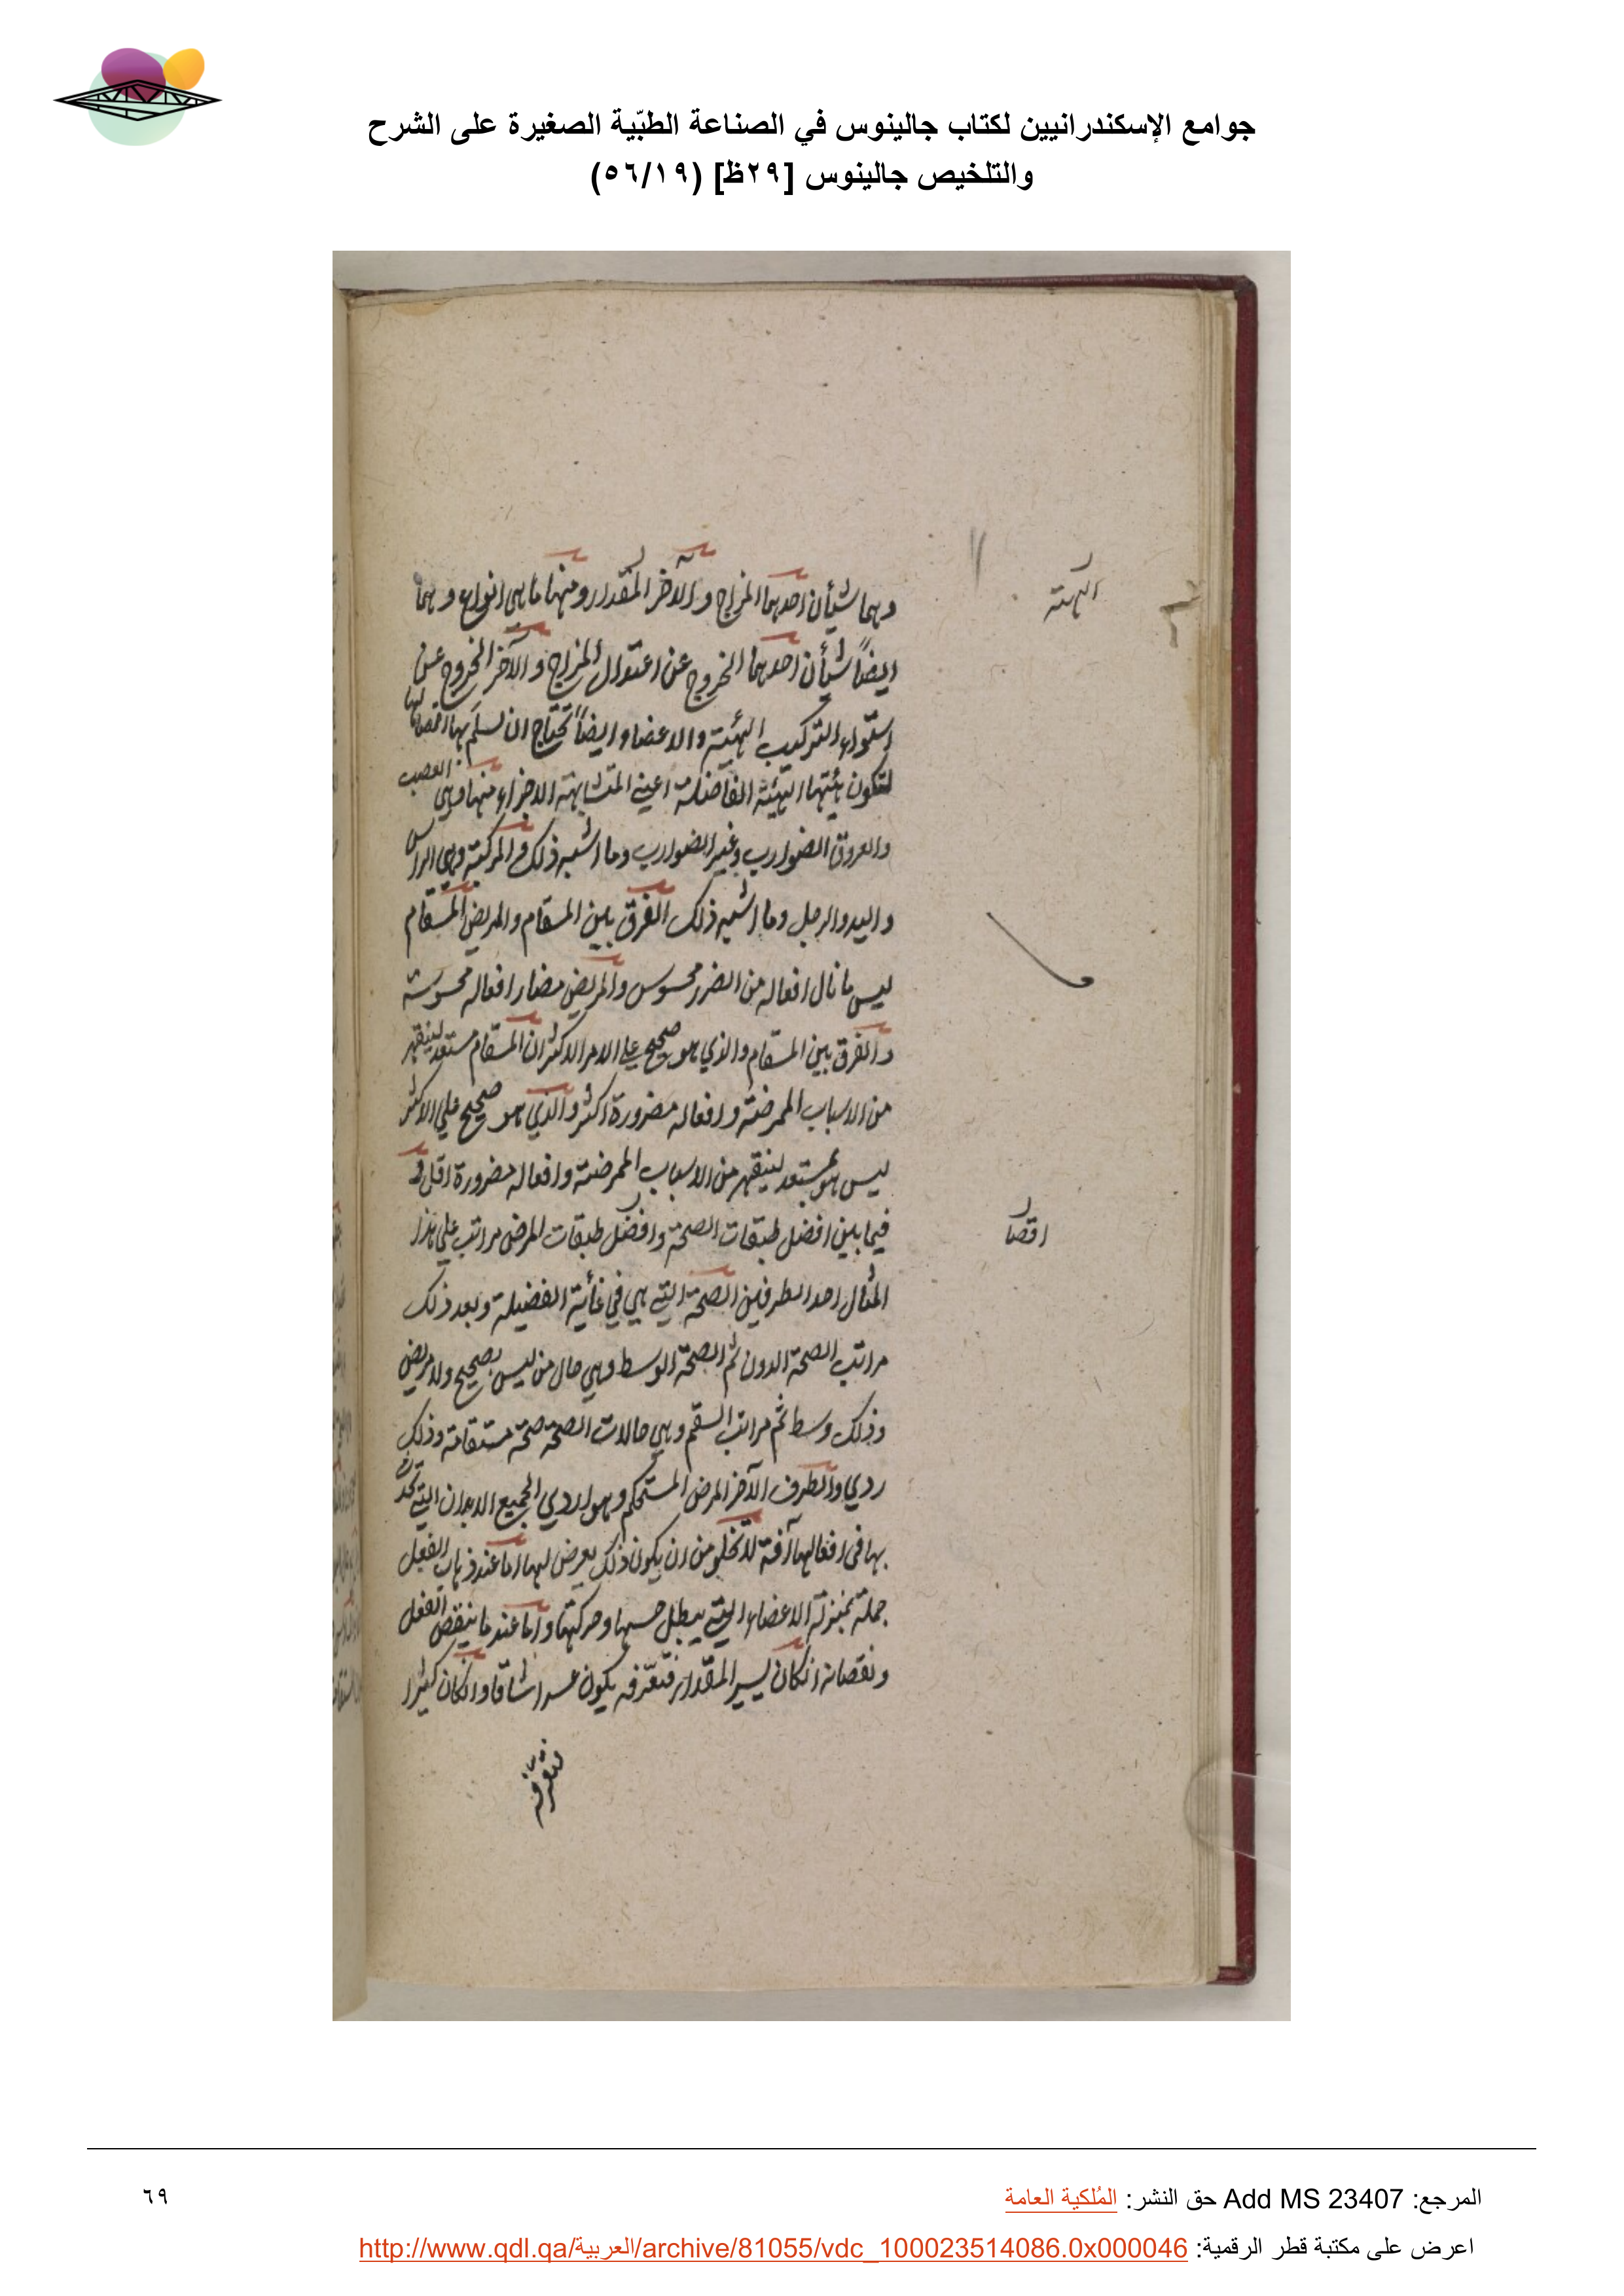 جوامع الإسكندرانيين لكتاب جالينوس في الصناعة الطبّية الصغيرة على الشرح
والتلخيص جالينوس [٢٩ظ] (٥٦/١٩)
وهما شيأن احدهما المزاج والآخر المقدار ومنها ما هى انواع وهما
الهيئة
ايضاً شيأن احدهما الخروج عن اعتدال المزاج والآخر الخروج عن
استواء التركيب الهيئة والاعضاء وايضاً تحتاج ان نسلم بها
لتكون هيئتها الهيئة الفاضلة اعني المتشابهة الاجزاء منها وهى العصب
والعروق الضوارب وغير الضوارب وما اشبه ذلك والمركبة وهى الراس
واليد والرجل وما اشبه ذلك الفرق بين المسقام والمريض المسقام
ليس ما نال افعاله من الضرر محسوس والمريض مضار افعاله محسوسة
والفرق بين المسقام والذي هو صحيح على الامر الاكثر ان المسقام مستعد لينقهر
من الاسباب الممرضة وافعاله مضرورة اكثر والذي هو صحيح على الاكثر
ليس هو بمستعد لينقهر من الاسباب الممرضة وافعاله مضرورة اقل و
فيما بين افضل طبقات الصحة وافضل طبقات المرض مراتب على هذا
اقصا
المثال احد الطرفين الصحة التي هي في غأية الفضيلة وبعد ذلك
مراتب الصحة الدون ثم الصحة الوسط وهي حال من ليس بصحيح ولا مريض
وذلك وسط ثم مراتب السقم وهي حالات الصحة صحة مستقامة وذلك
ردي والطرف الآخر المرض المستحكم وهو اردي الجميع الابدان التي تحدث
بها في افعالها آفة لا تخلو من ان يكون ذلك يعرض لها اما عند ذهاب الفعل
جملة بمنزلة الاعضاء التي يبطل حسها وحركتها واما عند ما ينقص الفعل
ونقصانه انكان يسير المقدار فتعرّفه يكون عسرا شاقا وانكان كثيرا
فتعرّفه
المرجع: Add MS 23407 حق النشر: المُلكية العامة
٦٩
اعرض على مكتبة قطر الرقمية: http://www.qdl.qa/العربية/archive/81055/vdc_100023514086.0x000046